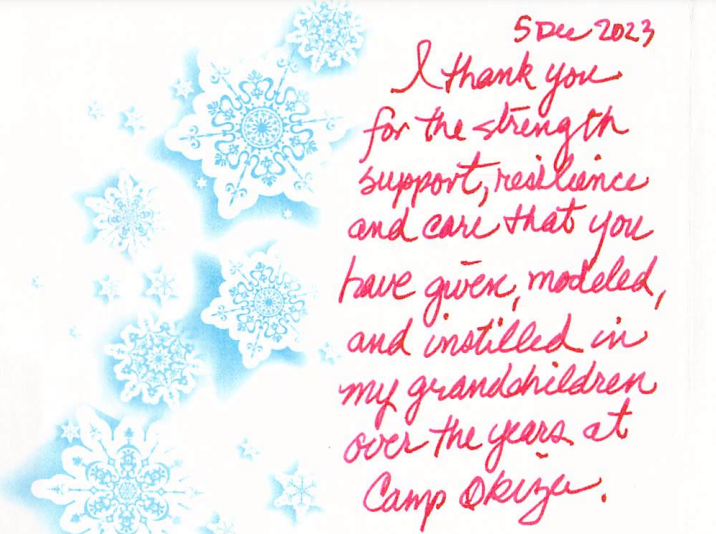 5 Dec 2023
I thank you
for the strength
support, resilience
and care that you
have given, modeled,
and instilled in
my grandchildren
over the years at
Camp Okizu.